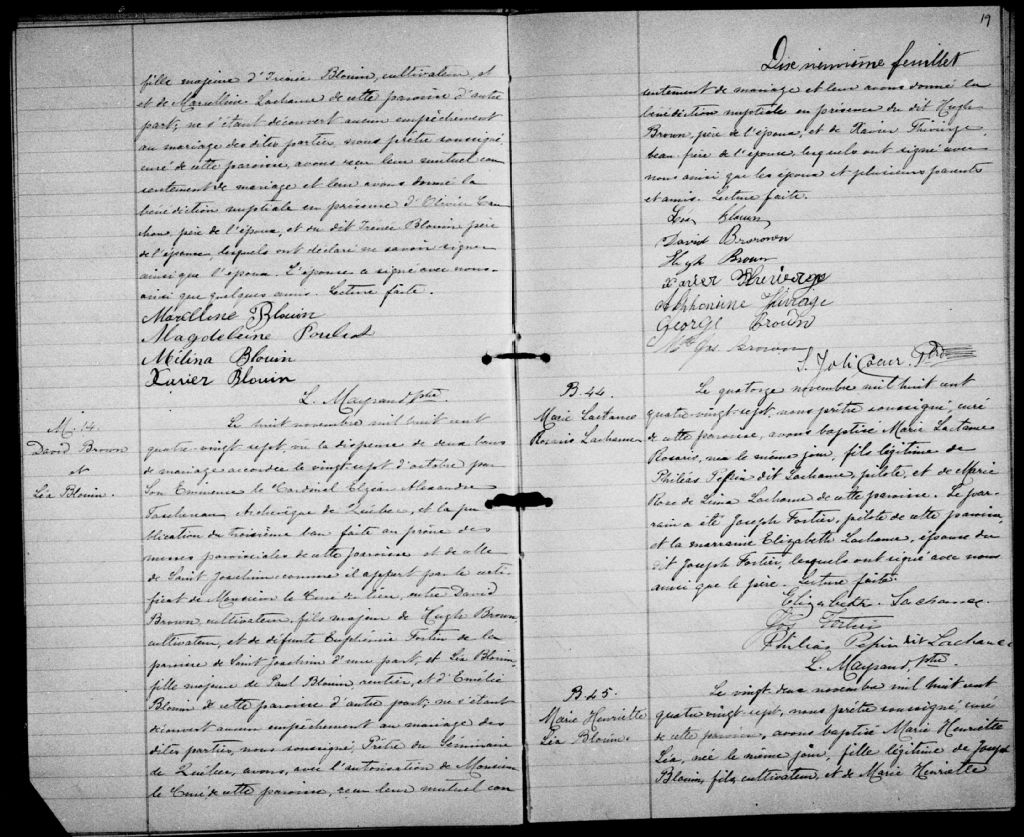 fille majeure d'Irénée Blouin, cultivateur, et
et de Marcelline Lachance de cette paroisse d'autre
part; ne s'étant découvert aucun empêchement
au mariage des dites parties, nous prêtre soussigné,
curé de cette paroisse, avons reçu leur mutuel con
sentement de mariage et leur avons donné la
bénédiction nuptiale en présence d'Olivier
père de l'époux, et du dit Irénée Blouin père
de l'épouse, lesquels ont déclaré ne savoir signer
ainsi que l'époux. L'épouse a signé avec nous
ainsi que quelques amis. Lecture faite.
Marelline Blouin
Magdeleine Pouliot
Mélina Blouin
Xavier Blouin
L. Mayrand, ptre
M. 14.
David Brown
et
Léa Blouin.
Le huit novembre mil huit cent
quatre-vingt-sept, vu la dispense de deux bans
de mariage accordée le vingt-sept d'octobre par
Son Eminence le Cardinal Elzéar Alexandre
Taschereau Archevêque de Québec, et la pu
blication du troisième ban faite au prône des
messes paroissiales de cette paroisse et de celle
de Saint Joachim comme il appert par le certi-
ficat de Monsieur le Curé du lieu, entre David
Brown, cultivateur, fils majeur de Hugh Brown
cultivateur, et de défunte Euphémie Fortin de la
paroisse de Saint Joachim d'une part, et Léa Blouin,
fille majeure de Paul Blouin, rentier, et d'Emélie
Blouin de cette paroisse d'autre part; ne s'étant
découvert aucun empêchement au mariage des
dites parties, nous soussigné, Prêtre du Séminaire
de Québec, avons, avec l'autorisation de Monsieur
le Curé de cette paroisse, reçu leur mutuel con
19
Dix neuvième feuillet
sentement de mariage et leur avons donné la
bénédiction nuptiale en présence du dit Hugh
Brown, père de l'époux, et de Xavier Thivierge,
beau-père de l'épouse, lesquels ont signé avec
nous ainsi que les époux et plusieurs parents
et amis. Lecture faite.
Léa Blouin
David Brorown
Hugh Brown
Xavier Thivierge
Thivierge
George Brown
Brown
S. Joli Coeur, Ptre
B. 44.
Marie Laetance
Rosaris Lachance
Le quatorze novembre mil huit cent
quatre-vingt-sept, nous prêtre soussigné, curé
de cette paroisse, avons baptisé Marie Laetance
Rosaris, née le même jour, fils légitime de
Philéas Pépin dit Lachance, pilote, et de Marie
Rose de Lima Lachance de cette paroisse. Le par-
rain a été Joseph Fortier, pilote de cette paroisse,
et la marraine Elizabeth Lachance, épouse du
dit Joseph Fortier, lesquels ont signé avec nous
ainsi que le père. Lecture faite.
Elizabeth Lachance
Jos Fortier
Philéas Pépin dit Lachance
L. Mayrand, ptre.
B. 45.
Marie Henriette
Léa Blouin.
Le vingt-deux novembre mil huit cent
quatre-vingt-sept, nous prêtre soussigné, curé
de cette paroisse, avons baptisé Marie Henriette
Léa, née le même jour, fille légitime de Joseph
Blouin, fils, cultivateur, et de Marie Henriette